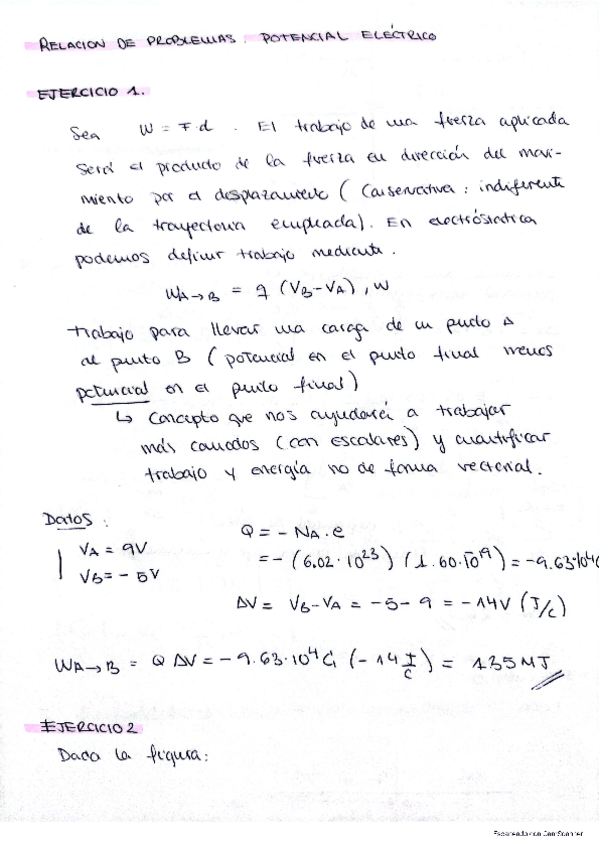 RELACION DE PROBLEMAS. POTENCIAL ELÉCTRICO
EJERCICIO 1.
Sea W = F·d. El trabajo de una fuerza aplicada
será el producto de la fuerza en dirección del movi-
miento por el desplazamiento (Conservativa: indiferente
de la trayectoria empleada). En electróstatica
podemos definir trabajo mediante.
WA→B = q (VB-VA), W
trabajo para llevar una carga de un punto A
al punto B (potencial en el punto final menos
potencial en el punto final)
↳ Concepto que nos ayudará a trabajar
más comodos (con escalares) y cuantificar
trabajo y energía no de forma vectorial.
Datos:
VA = 9V
VB = - 5V
Q = - NA·e
= - (6.02·10²³) (1.60·10⁻¹⁹) = -9.63·10⁴C
ΔV = VB-VA = -5-9 = -14V (J/C)
WA→B = Q ΔV = -9.63·10⁴C (-14 J/C) = 1.35 MJ
EJERCICIO 2
Dada la figura:
Escaneado con CamScanner